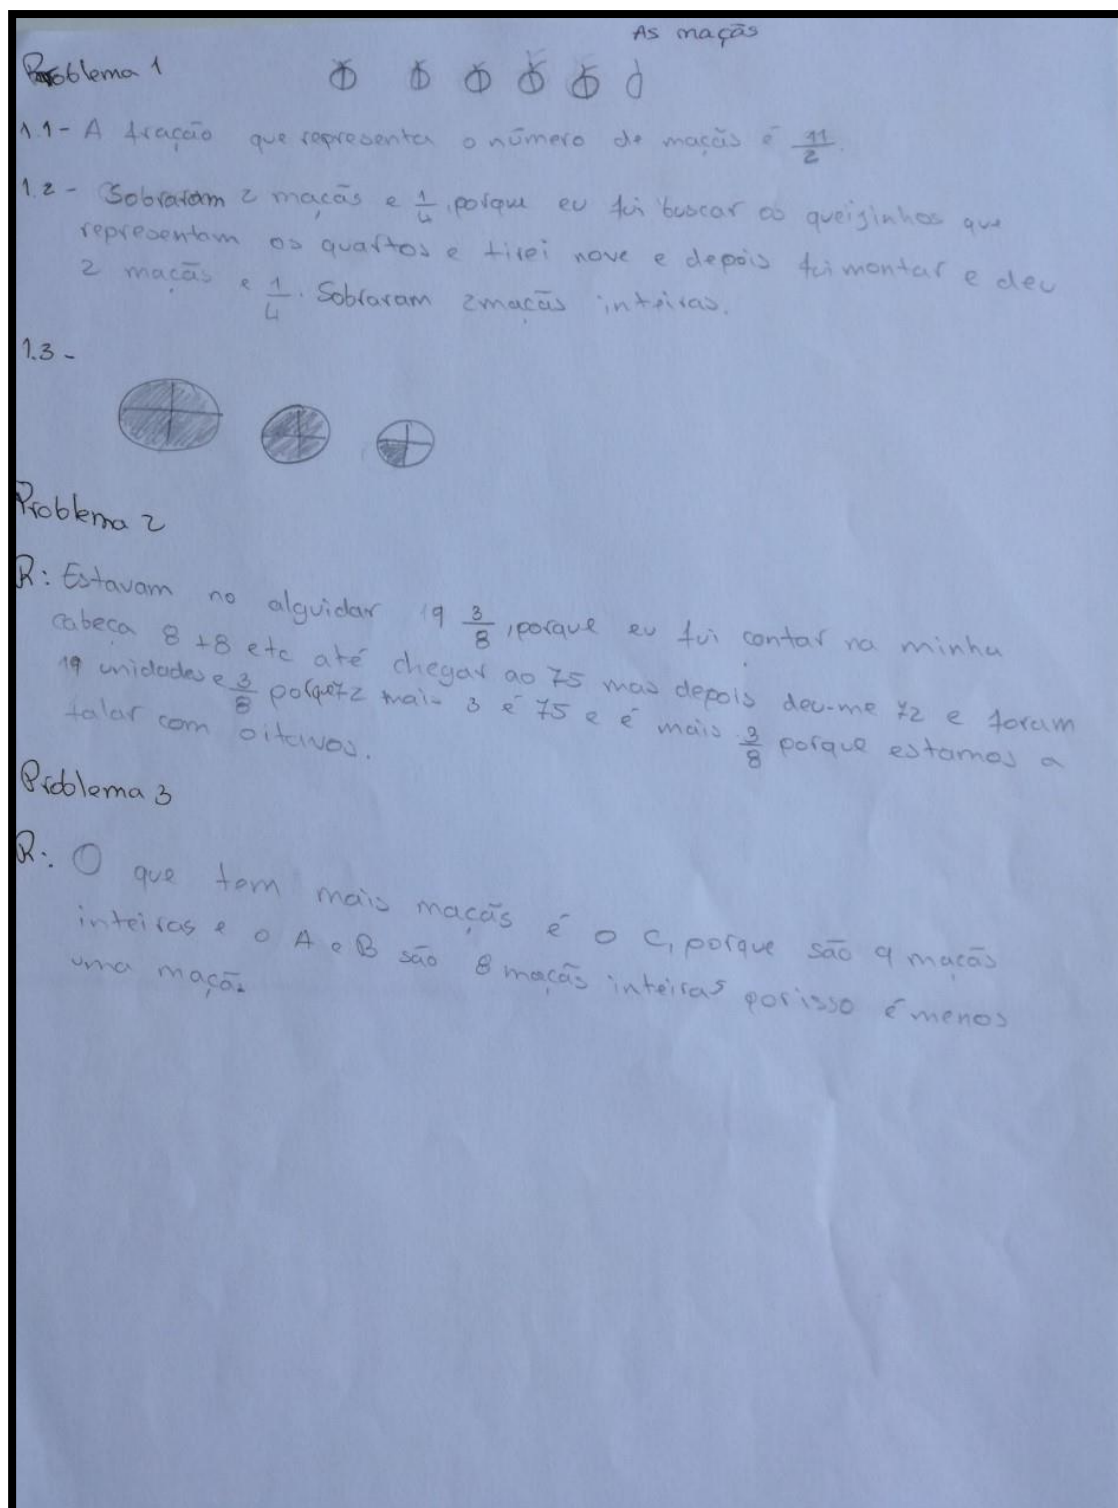 As maçãs
Problema 1
1.1- A fração que representa o número de maçãs é 11/2.
1.2- Sobraram 2 maçãs e 1/4, porque eu fui buscar os queijinhos que
representam os quartos e tirei nove e depois fui montar e deu
2 maçãs e 1/4. Sobraram 2 maçãs inteiras.
1.3-
Problema 2
R: Estavam no alguidar 19 3/8, porque eu fui contar na minha
cabeça 8+8 etc até chegar ao 75 mas depois deu-me 72 e foram
19 unidades e 3/8 porque 72 mais 3 é 75 e é mais 3/8 porque estamos a
falar com oitavos.
Problema 3
R: O que tem mais maçãs é o C, porque são 9 maçãs
inteiras e o A e B são 8 maçãs inteiras por isso é menos
uma maçã.